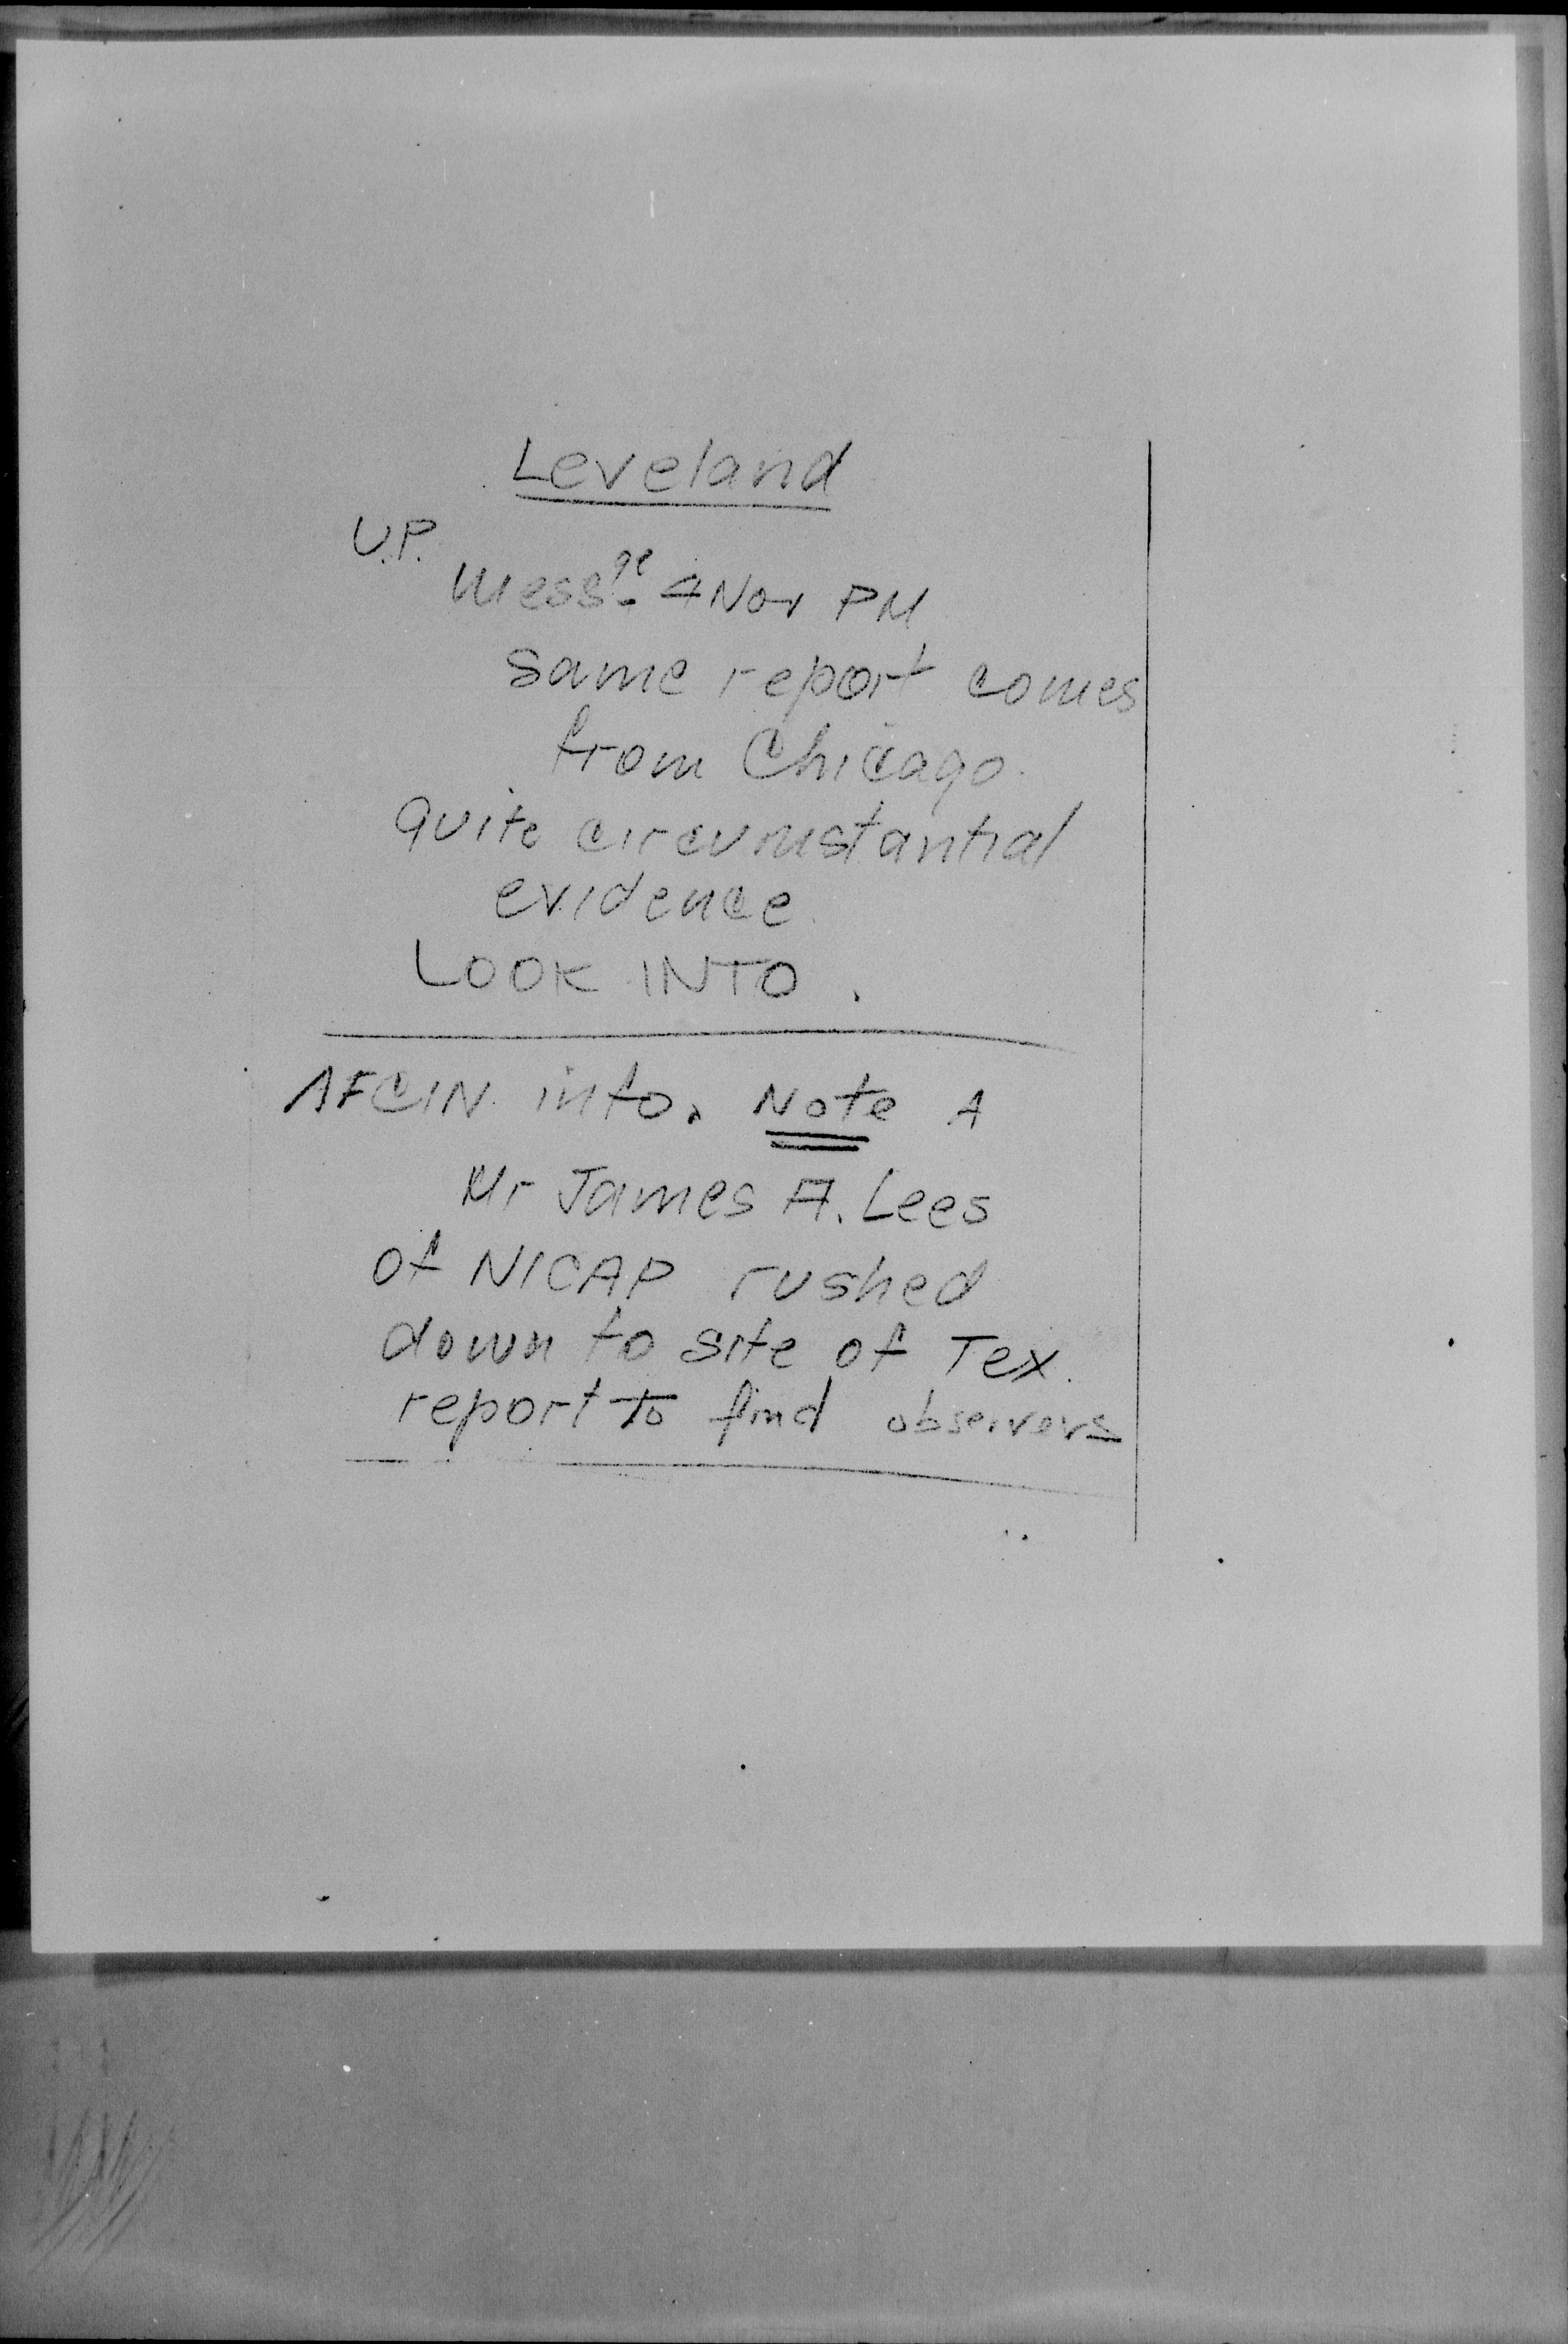 Leveland
U.P.
Messge 4 Nov PM
same report comes
from Chicago.
quite circumstantial
evidence.
LOOK INTO.
AFCIN info. Note A
Mr James A. Lees
of NICAP rushed
down to site of Tex.
report to find observers